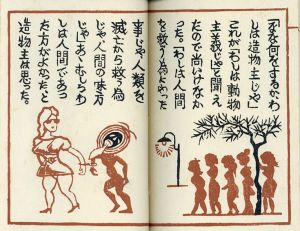 「なな何をするかわ
しは造物主じゃ」
これが「わしは動物
主義じゃ」と聞え
たので尚いけなか
った。「わしは人間
を救う為にわめいた
事じゃ人類を
滅亡から救う為
じゃ」「人間の味方
じゃ」あゝむしろわ
しは人間であっ
た方がよかったと
造物主は思った。